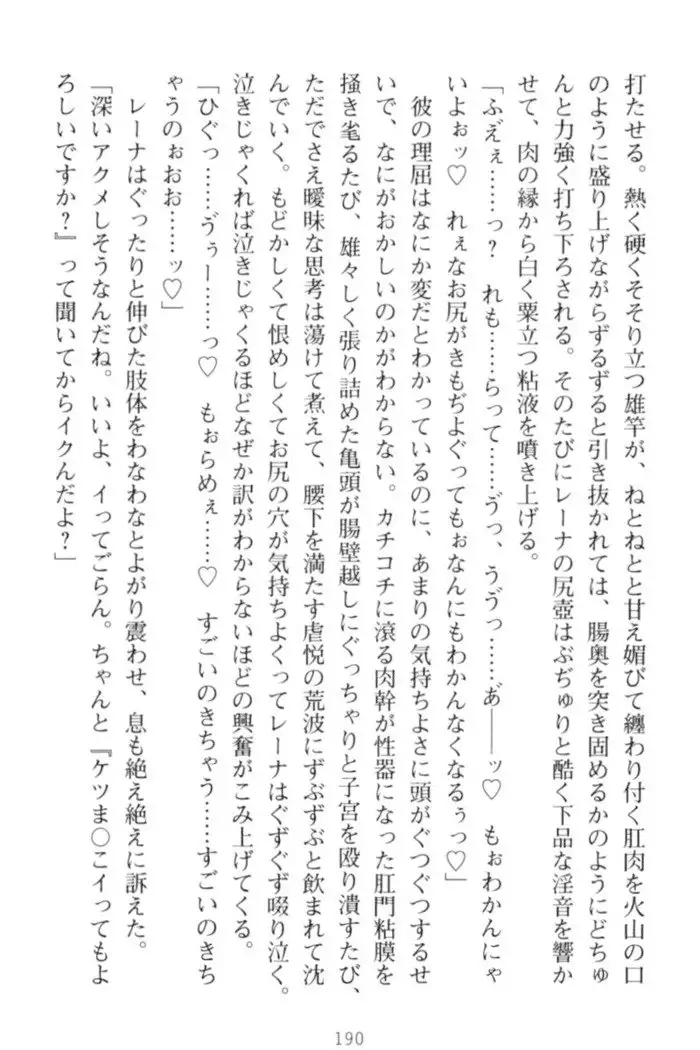 打たせる。熱く硬くそそり立つ雄竿が、ねとねとと甘え媚びて纏わり付く肛肉を火山の口
のように盛り上げながらずるずると引き抜かれては、腸奥を突き固めるかのようにどちゅ
んと力強く打ち下ろされる。そのたびにレーナの尻壺はぶぢゅりと酷く下品な淫音を響か
せて、肉の縁から白く粟立つ粘液を噴き上げる。
「ふえぇ……っ？　れも……らって……ゔっ、うゔっ……あ゙――ッ♡　もぉわかんにゃ
いよぉッ♡　れぇなお尻がきもぢよぐってもぉなんにもわかんなくなるぅっ♡」
　彼の理屈はなにか変だとわかっているのに、あまりの気持ちよさに頭がぐつぐつするせ
いで、なにがおかしいのかがわからない。カチコチに滾る肉幹が性器になった肛門粘膜を
掻き毟るたび、雄々しく張り詰めた亀頭が腸壁越しにぐっちゃりと子宮を殴り潰すたび、
ただでさえ曖昧な思考は蕩けて煮えて、腰下を満たす虐悦の荒波にずぶずぶと飲まれて沈
んでいく。もどかしくて恨めしくてお尻の穴が気持ちよくってレーナはぐずぐず啜り泣く。
泣きじゃくれば泣きじゃくるほどなぜか訳がわからないほどの興奮がこみ上げてくる。
「ひぐっ……ゔぅー……っ♡　もぉらめぇ……♡　すごいのきちゃう……すごいのきち
ゃうのぉおお……ッ♡」
　レーナはぐったりと伸びた肢体をわなわなとよがり震わせ、息も絶え絶えに訴えた。
「深いアクメしそうなんだね。いいよ、イってごらん。ちゃんと『ケツま○こイってもよ
ろしいですか？』って聞いてからイクんだよ？」
190